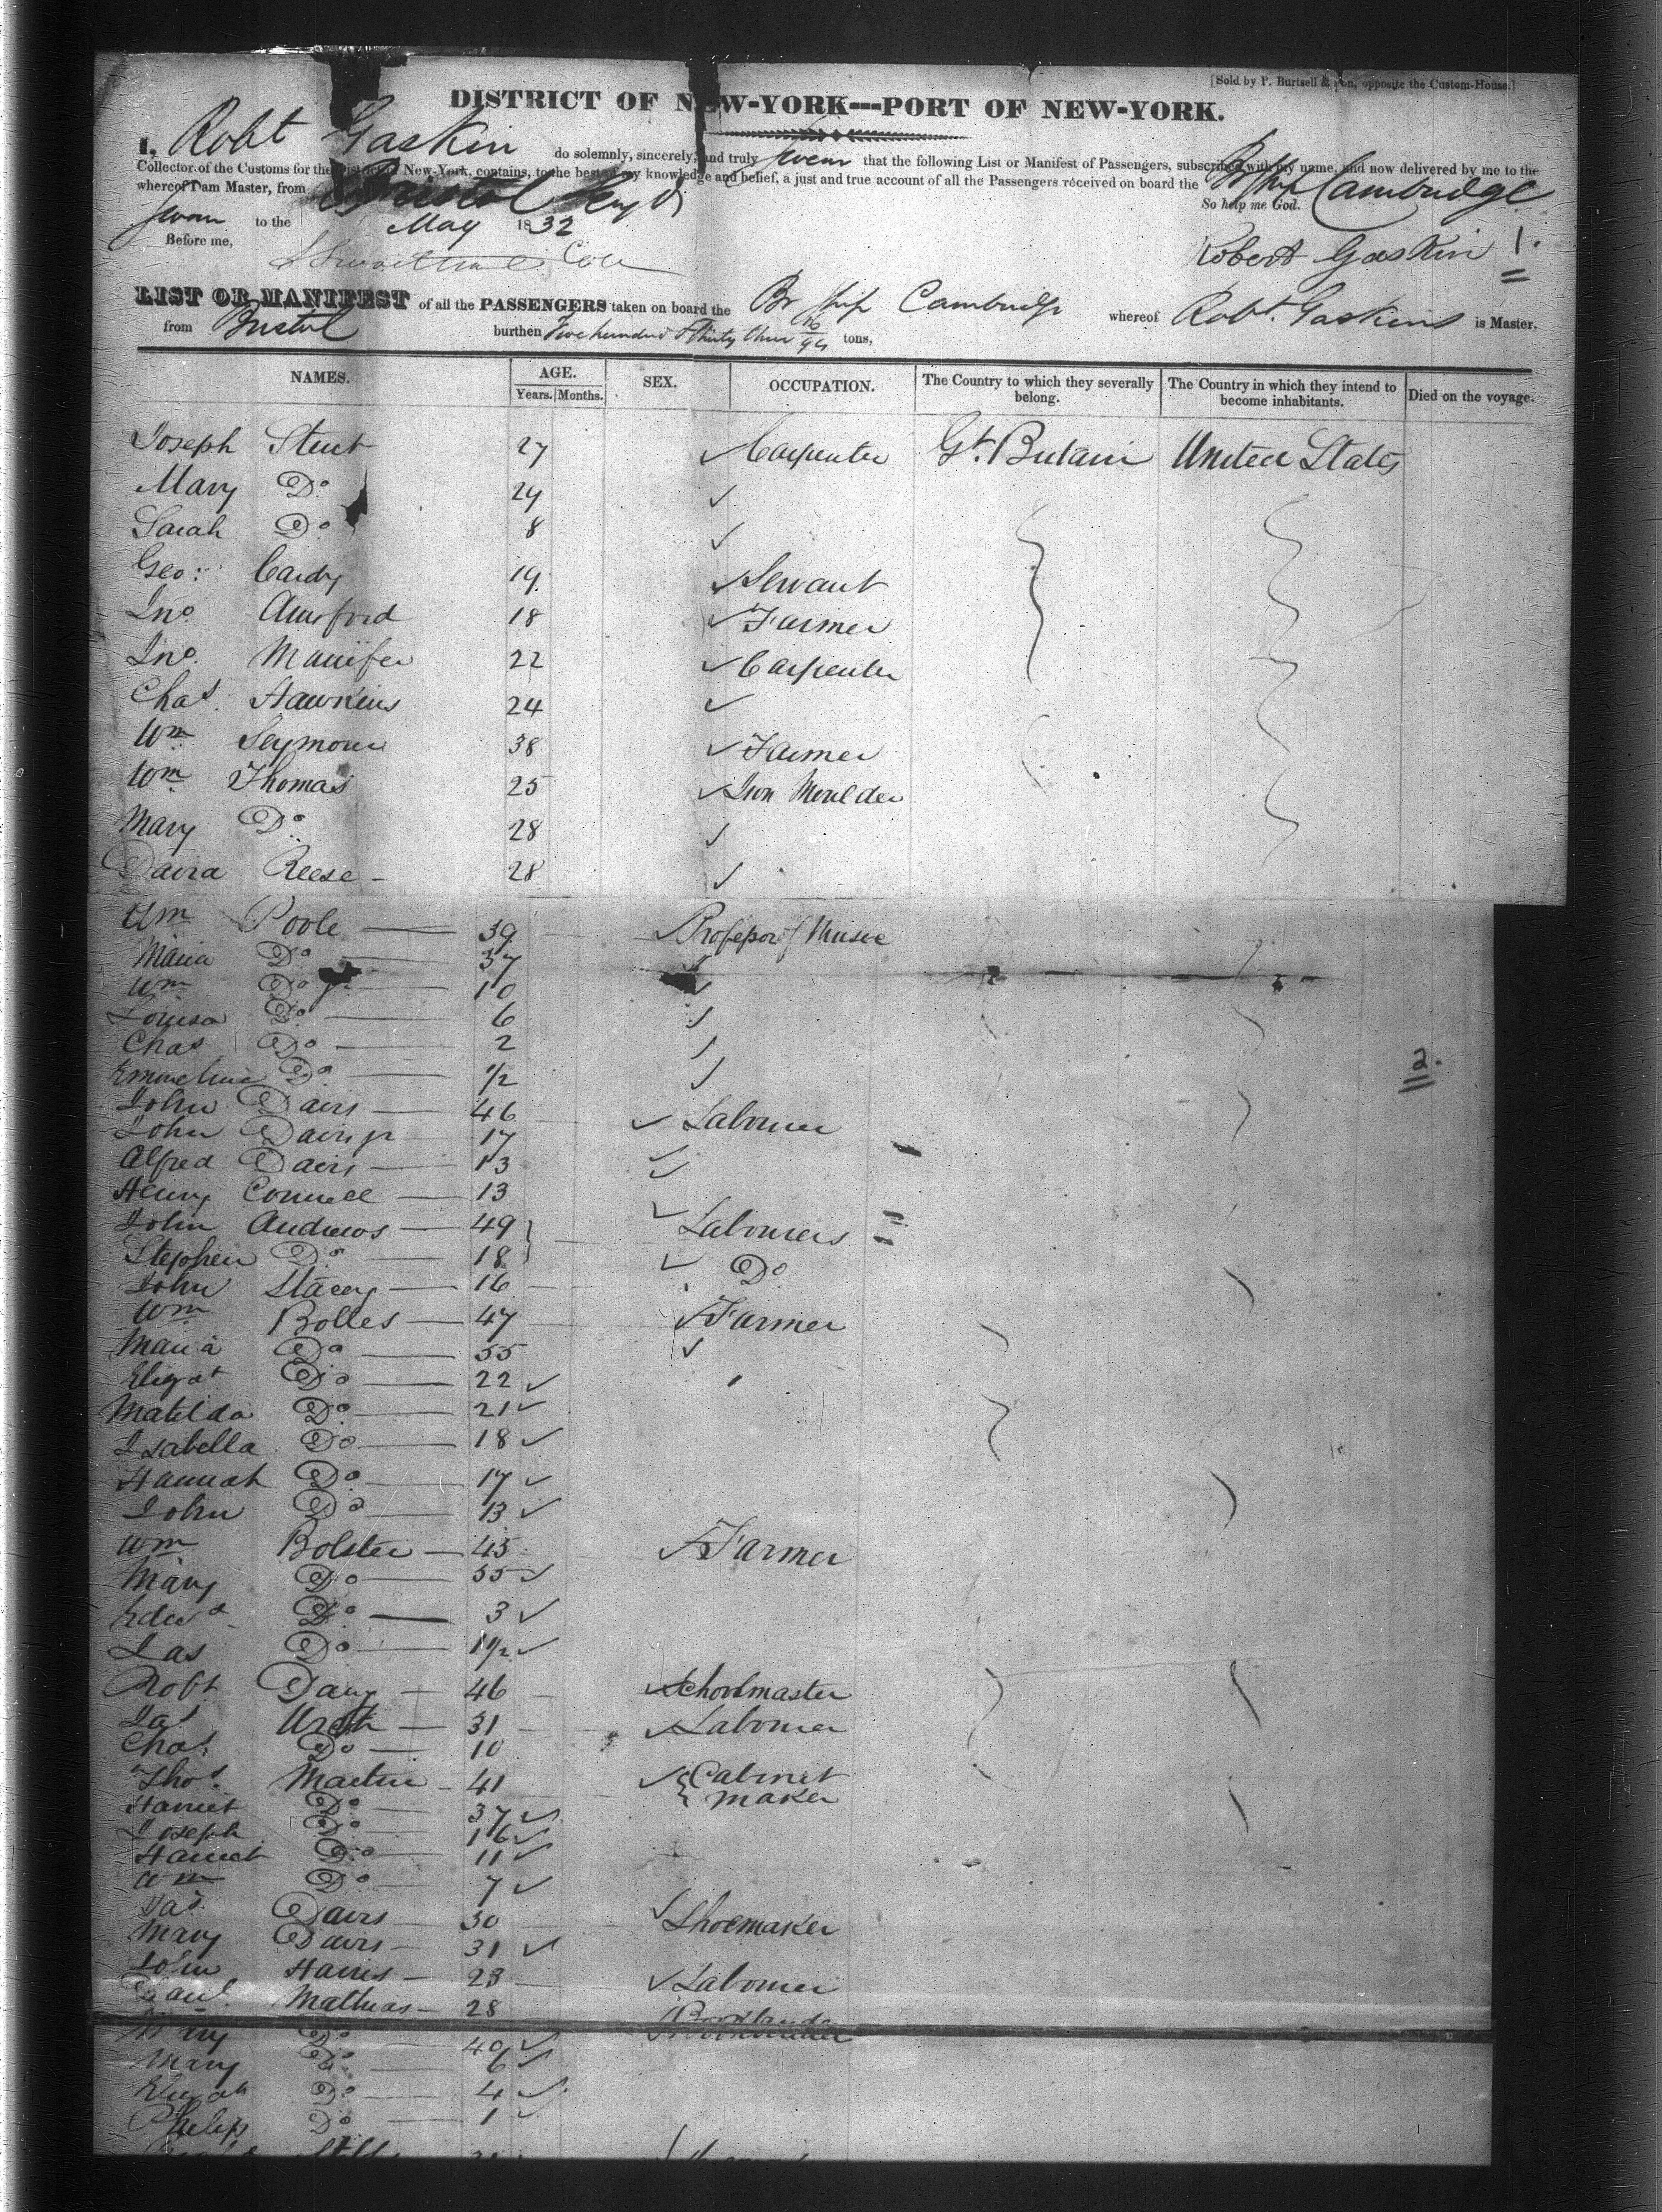 [Sold by P. Burtsell & Son, opposite the Custom-House.]
DISTRICT OF NEW-YORK---PORT OF NEW-YORK.
I, Robt Gaskin do solemnly, sincerely, and truly swear that the following List or Manifest of Passengers, subscribed with my name, and now delivered by me to the
Collector of the Customs for the District of New-York, contains, to the best of my knowledge and belief, a just and true account of all the Passengers received on board the Br Ship Cambridge
whereof I am Master, from Bristol
So help me God.
Sworn to the May 1832
Before me, Robert Gaskin 1.
LIST OR MANIFEST of all the PASSENGERS taken on board the Br Ship Cambridge whereof Robt. Gaskins is Master,
from Bristol burthen Five hundred & thirty three tons,
NAMES. AGE. SEX. OCCUPATION. The Country to which they severally belong. The Country in which they intend to become inhabitants. Died on the voyage.
Years. Months.
Joseph 27 Carpenter Gt. Britain United States
Mary Do 24
Sarah Do 8
Geo: Cardy 19 Servant
Jno. 18 Farmer
Jno. 22 Carpenter
Chas. Hawkins 24
Wm Seymour 38 Farmer
Wm Thomas 25 Iron Moulder
Mary Do 28
David Reese 28
Wm Poole 39 Professor of Music
Maria Do 37
Wm Do jr 10
Louisa Do 6
Chas Do 2
Emmeline Do 1/2
John Davis 46 Labourer
John Davis jr 17
Alfred Davis 13
Henry Connell 13
John Andrews 49 Labourers
Stephen Do 18 Do
John Stacey 16
Wm Bolles 47 Farmer
Maria Do 55
Do 22
Matilda Do 21
Isabella Do 18
Hannah Do 17
John Do 13
Wm Bolster 45 Farmer
Mary Do 35
Edwd Do 3
Jas Do 1 1/2
Robt Davy 46 Schoolmaster
Jas 31 Labourer
Chas. Do 10
Thos. Martin 41 Cabinet
maker
Harriet Do 37
Joseph Do 16
Harriet Do 11
Wm Do 7
Jas. Davis 30 Shoemaker
Mary Davis 31
John Harris 23 Labourer
Mathias 28 Bookbinder
Mary Do 40
Mary Do 6
Elizath Do 4
Philip Do 1
2.